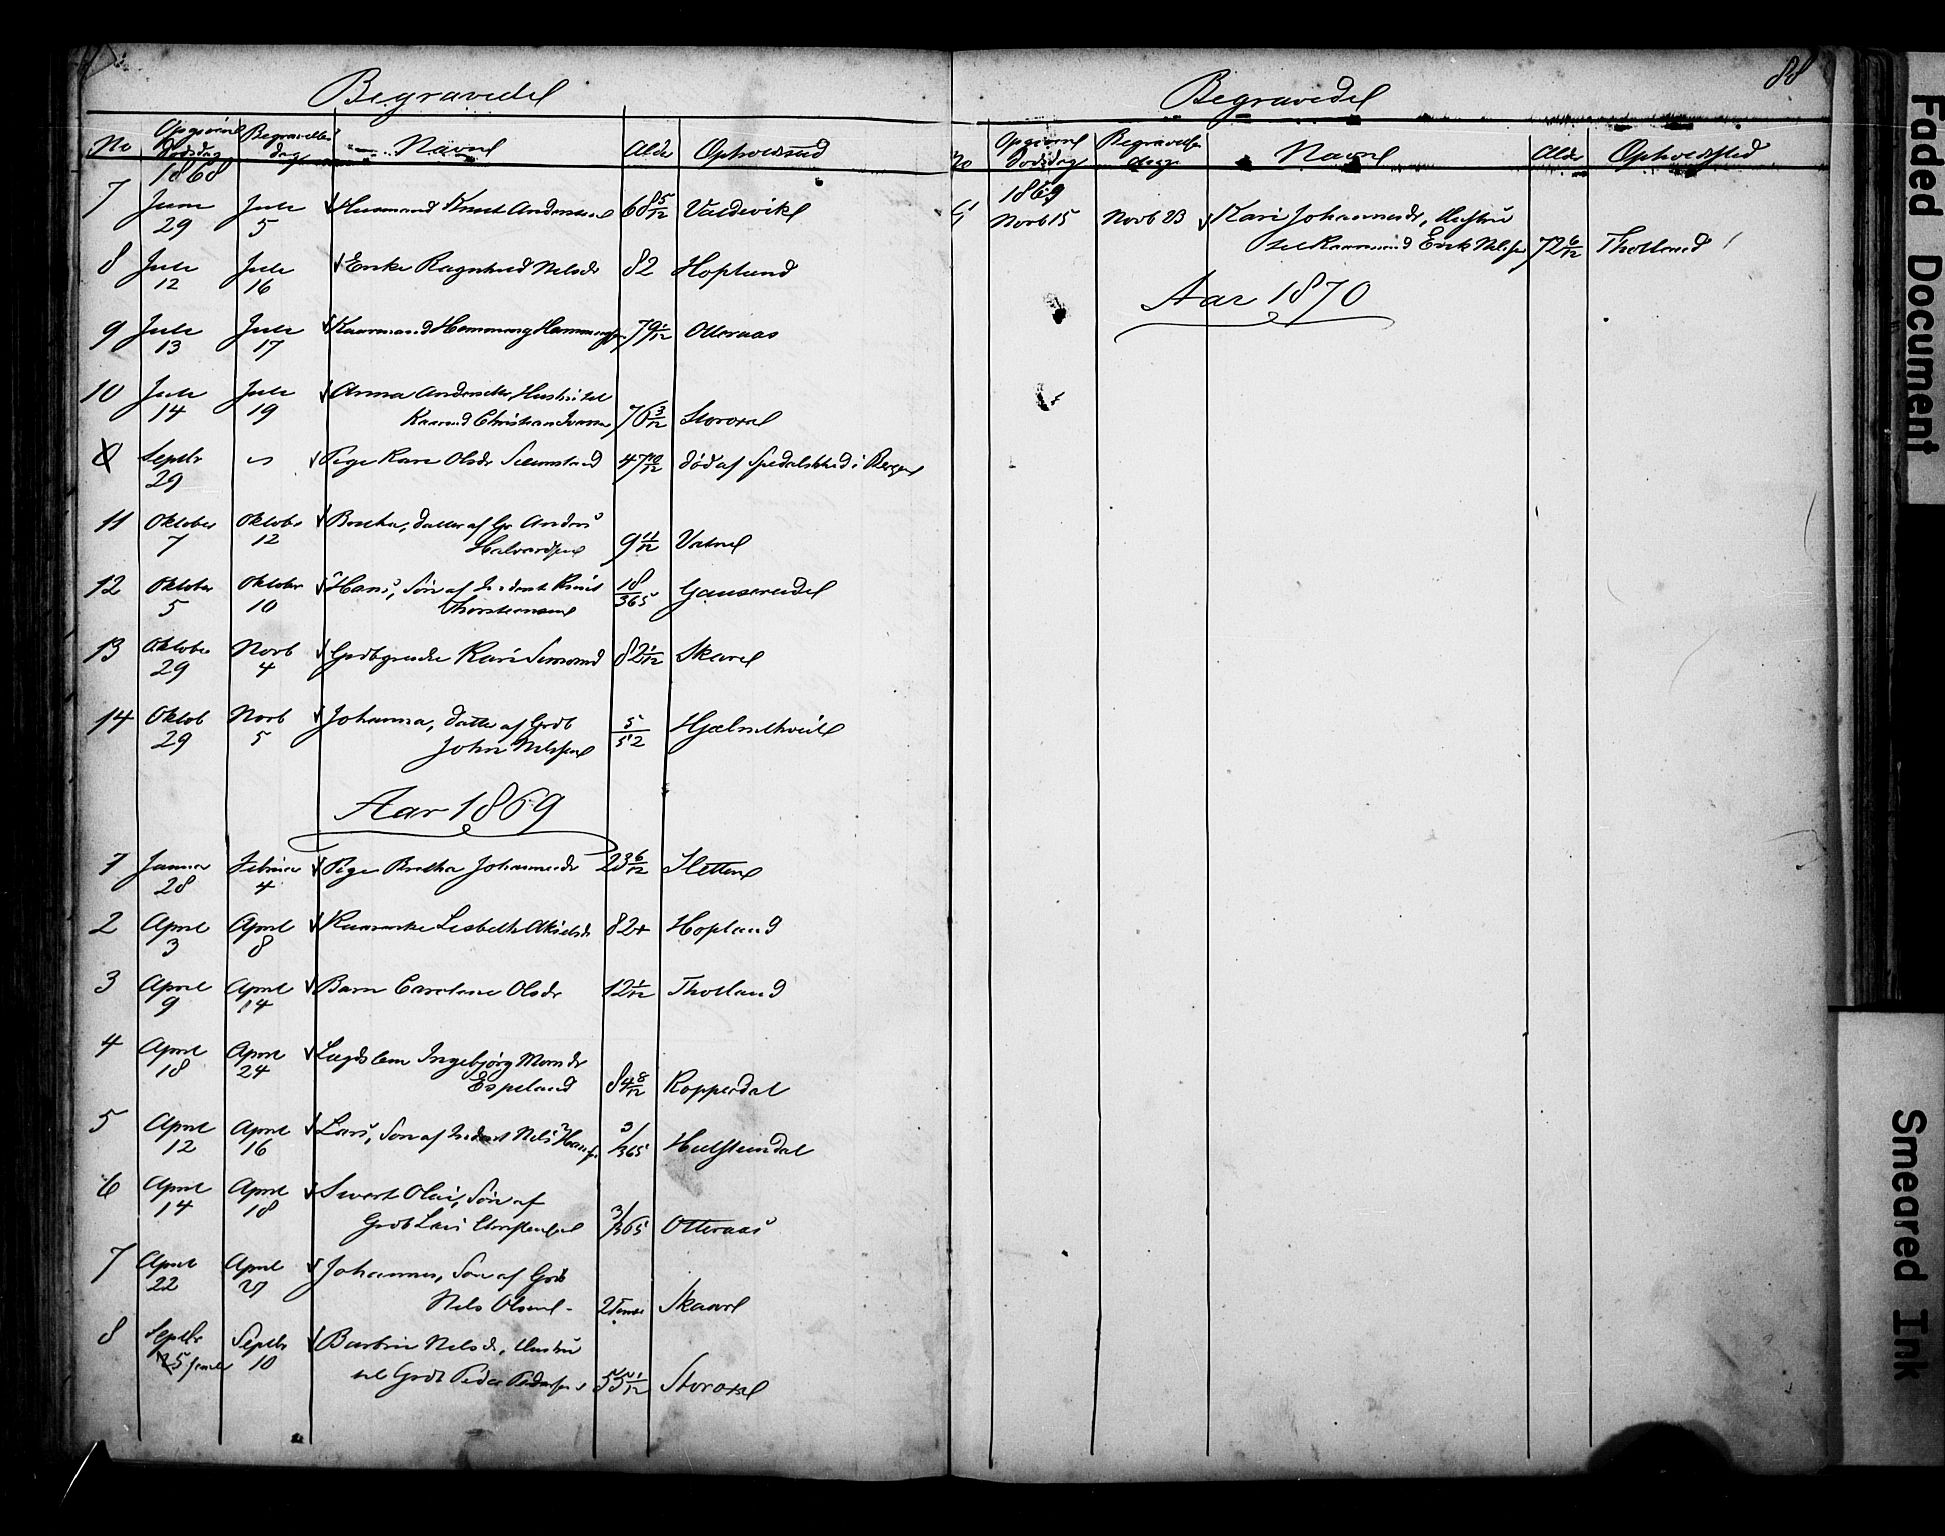 Begravede
No Opgivne Dødsdag Begravelses dag Navne Alder Opholdssted
1868
7 Juni 29 Juli 5 Huusmand Knud Andersen 68 5/12 Valdevike
8 Juli 12 Juli 16 Enke Ragnhild Nelsdr 82 Hopland
9 Juli 13 Juli 17 Kaarmand Hemming Hemmingsen 79 1/12 Otteraas
10 Juli 14 Juli 19 Anna Andersdtr Hustru til
Kaarmd Christian Iversen 76 3/12 Storoxe
Septbr 29 " Pige Kari Olsdr 47 10/12 død af Spedalskhed i Bergen
11 Oktober 7 Oktober 12 Brita, Datter af Gr Anders
Halvordsen 9 11/12 Vatne
12 Oktober 5 Oktober 10 Hans, Søn af Inderst Knud
Thorstensen 18/365
13 Oktober 29 Novb 4 Kari Simonsd 82 1/12 Skare
14 Oktob 29 Novb 5 Johanna, Datter af Grdb
John Nelssen 5/52 Hjelmetveit
Aar 1869
1 Januar 28 Februar 4 Pige Britha Johannesdr 23 6/12 Sletten
2 April 3 April 8 Lisbeth 82 Hopland
3 April 9 April 14 Barn Caroline Olsdr 12 1/12 Thotland
4 April 18 April 24 Lægdslem Ingebjørg Monsdr
Espeland 84 8/12 Kopperdal
5 April 12 April 16 Lars, Søn af Inderst Nels Hansen 3/365
6 April 14 April 18 Sivert Olai, Søn af
Grdb Lars Christensen 3/365 Otteraas
7 April 22 April 27 Johannes, Søn af Grdb
Nels Olsen 2 Timer Skaare
8 Septbr 5 Septbr 10 Barbra Nelsdr, Hustru
til Grdb Peder Pedersen 55 1/12 Storoxe
88
Begravede
No Opgivne Dødsdag Begravelses dage Navne Alder Opholdssted
1869
9 Novb 15 Novb 23 Kari Johannesdr, Hustru
til Kaarmand Erik Nelssen 72 6/12 Thotland
Aar 1870
Faded Document
Smeared Ink